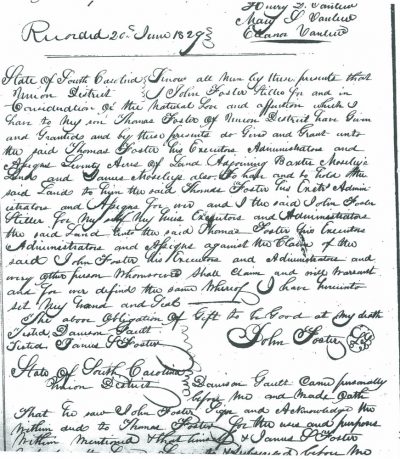 Henry
Mary S
Eleanor
Recorded 20th June 1829
State Of South Carolina Know all Men by these presents that
Union District I John Foster Stiller for and in
Consideration Of the Natural Love and affection which I
have to my son Thomas Foster Of Union District have Given
and Granted and by these presents do Give and Grant unto
the said Thomas Foster his Executors Administrators and
Assigns Seventy Acres Of Land Adjoining Baxter Moseley's
Land and James Moseleys also To have and to hold the
said Land to him the said Thomas Foster his Exets Admin-
istrators and Assigns for ever and I the said John Foster
Stiller for My self My heirs Executors and Administrators
the said Land unto the said Thomas Foster his Executors
Administrators and Assigns against the Claim Of the
said John Foster his Executors and Administrators and
every other person Whomsoever Shall Claim and will Warrant
and for ever defend the same Whereof I have hereunto
set My hand and Seal
The above Obligation Of Gift to be Good at My death
Testd Dawson Gault
Testd James S Foster John Foster
State Of South Carolina
Union District Dawson Gault Came personally
before Me and Made Oath
That he saw John Foster Sign and Acknowledge the
Within deed to Thomas Foster for the use and purpose
Within Mentioned & that himself & James S Foster
before Me